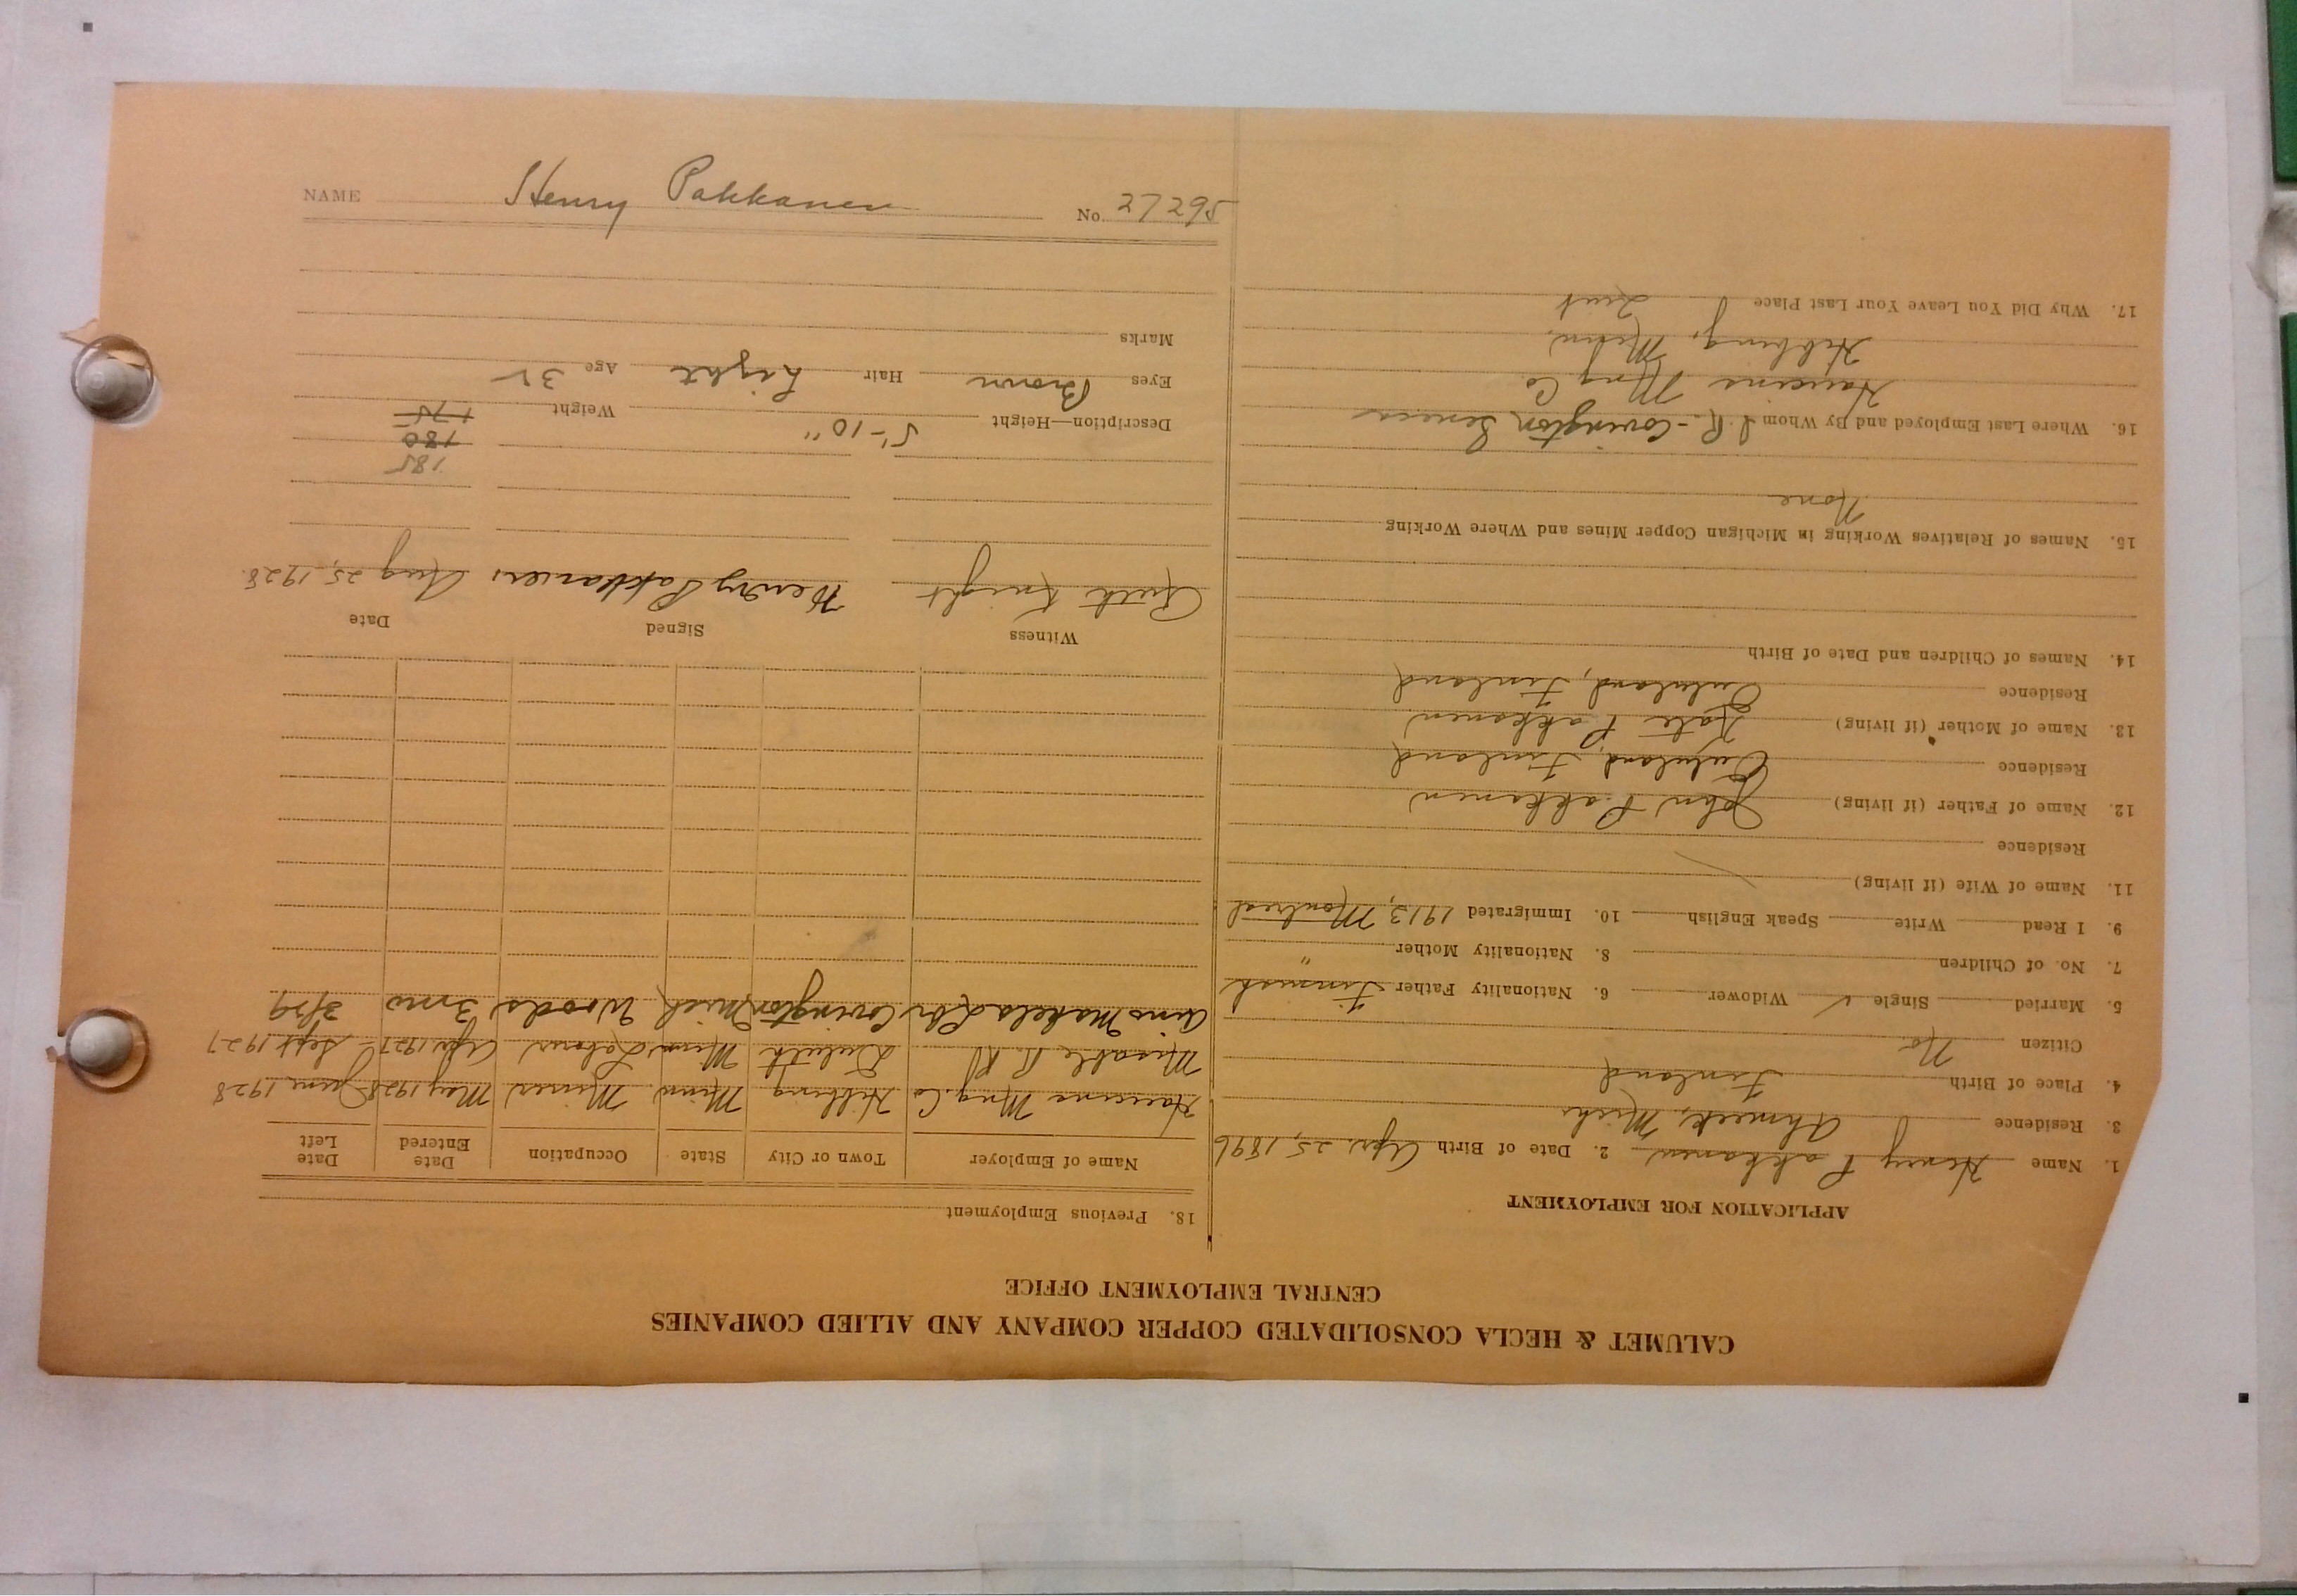 CALUMET & HECLA CONSOLIDATED COPPER COMPANY AND ALLIED COMPANIES
CENTRAL EMPLOYMENT OFFICE
APPLICATION FOR EMPLOYMENT
1. Name Henry Pakkanen 2. Date of Birth Apr. 25, 1896
3. Residence Ahmeek, Mich.
4. Place of Birth Finland
Citizen No.
5. Married Single ✓ Widower 6. Nationality Father Finnish
7. No. of Children 8. Nationality Mother "
9. I Read Write Speak English 10. Immigrated 1913, Montreal
11. Name of Wife (if living)
Residence
12. Name of Father (if living) John Pakkanen
Residence Finland
13. Name of Mother (if living) Kate Pakkanen
Residence Finland
14. Names of Children and Date of Birth
15. Names of Relatives Working in Michigan Copper Mines and Where Working
None
16. Where Last Employed and By Whom Covington Seneca
Mng Co.
Hibbing, Minn.
17. Why Did You Leave Your Last Place Quit
18. Previous Employment
Name of Employer Town or City State Occupation Date Entered Date Left
Mng. Co Hibbing Minn Miner May 1928 June 1928
Missabe R. R. Duluth Minn Labour Apr. 1927 Sept 1927
Aino Makela Covington Mich Woods 3 mo 3/29
Witness Signed Date
Ruth Knight Henry Pakkanen Aug 25, 1928.
185
180
Description—Height 5'-10" Weight 175
Eyes Brown Hair Light Age 32
Marks
NAME Henry Pakkanen No. 27295